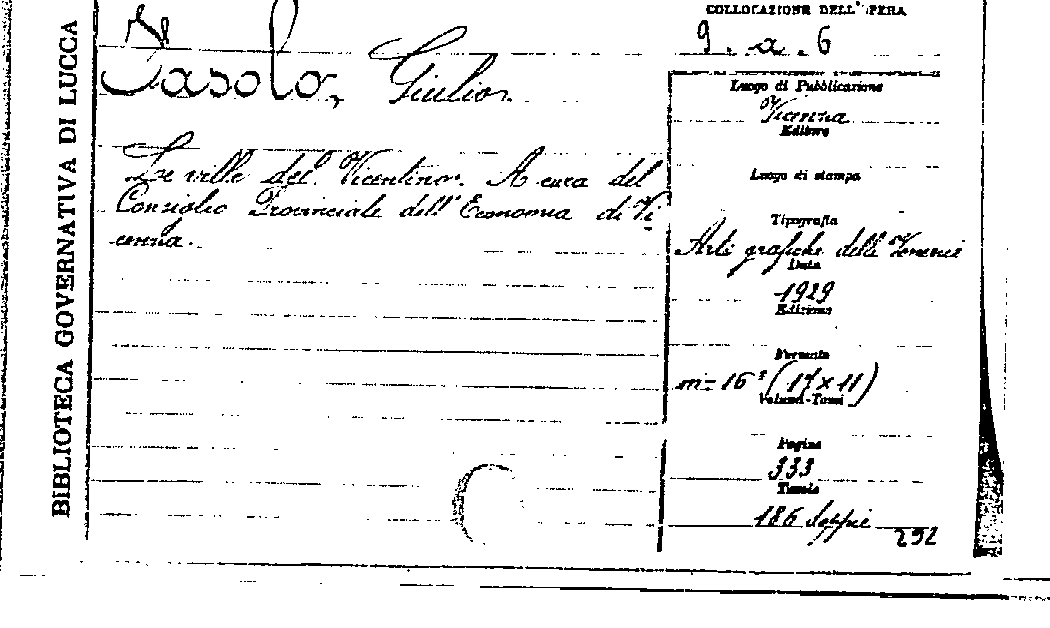 BIBLIOTECA GOVERNATIVA DI LUCCA
COLLOCAZIONE DELL'OPERA
9. a. 6
Fasolo, Giulio.
Le ville del Vicentino. A cura del
Consiglio Provinciale dell'Economia di Vi
cenza.
Luogo di Pubblicazione
Vicenza
Editore
Luogo di stampa
Tipografia
Arti grafiche delle Venezie
Data
1929
Edizione
Formato
in-16° (17x11)
Volumi-Tomi
Pagine
333
Tavole
186 doppie
292